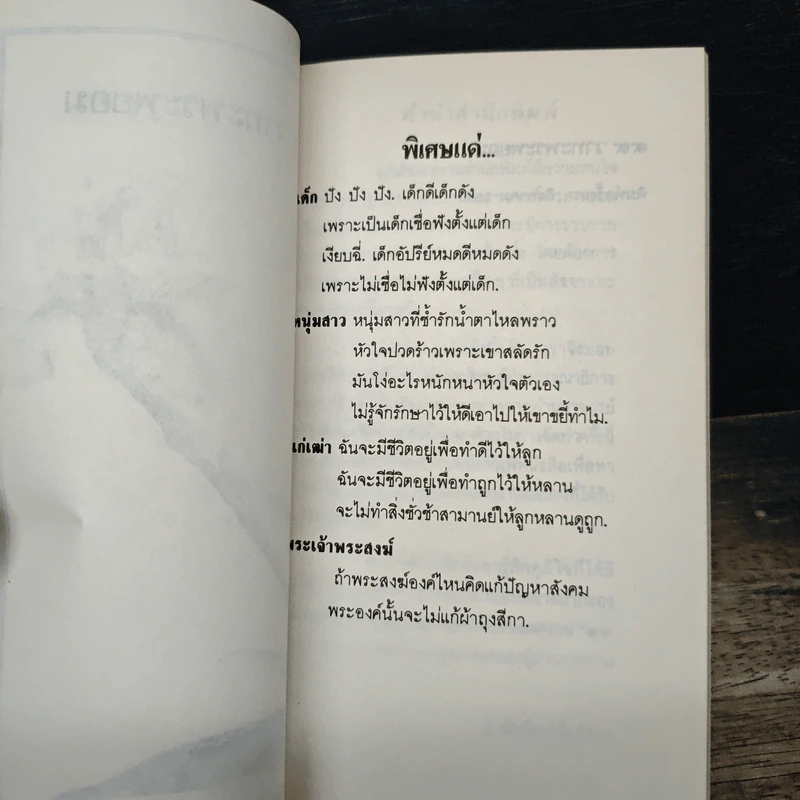 พิเศษแด่...
เด็ก ปัง ปัง ปัง. เด็กดีเด็กดัง
เพราะเป็นเด็กเชื่อฟังตั้งแต่เด็ก
เงียบฉี่. เด็กอัปรีย์หมดดีหมดดัง
เพราะไม่เชื่อไม่ฟังตั้งแต่เด็ก.
หนุ่มสาว หนุ่มสาวที่ช้ำรักน้ำตาไหลพราว
หัวใจปวดร้าวเพราะเขาสลัดรัก
มันโง่อะไรหนักหนาหัวใจตัวเอง
ไม่รู้จักรักษาไว้ให้ดีเอาไปให้เขาขยี้ทำไม.
แก่เฒ่า ฉันจะมีชีวิตอยู่เพื่อทำดีไว้ให้ลูก
ฉันจะมีชีวิตอยู่เพื่อทำถูกไว้ให้หลาน
จะไม่ทำสิ่งชั่วช้าสามานย์ให้ลูกหลานดูถูก.
พระเจ้าพระสงฆ์
ถ้าพระสงฆ์องค์ไหนคิดแก้ปัญหาสังคม
พระองค์นั้นจะไม่แก้ผ้าถุงสีกา.